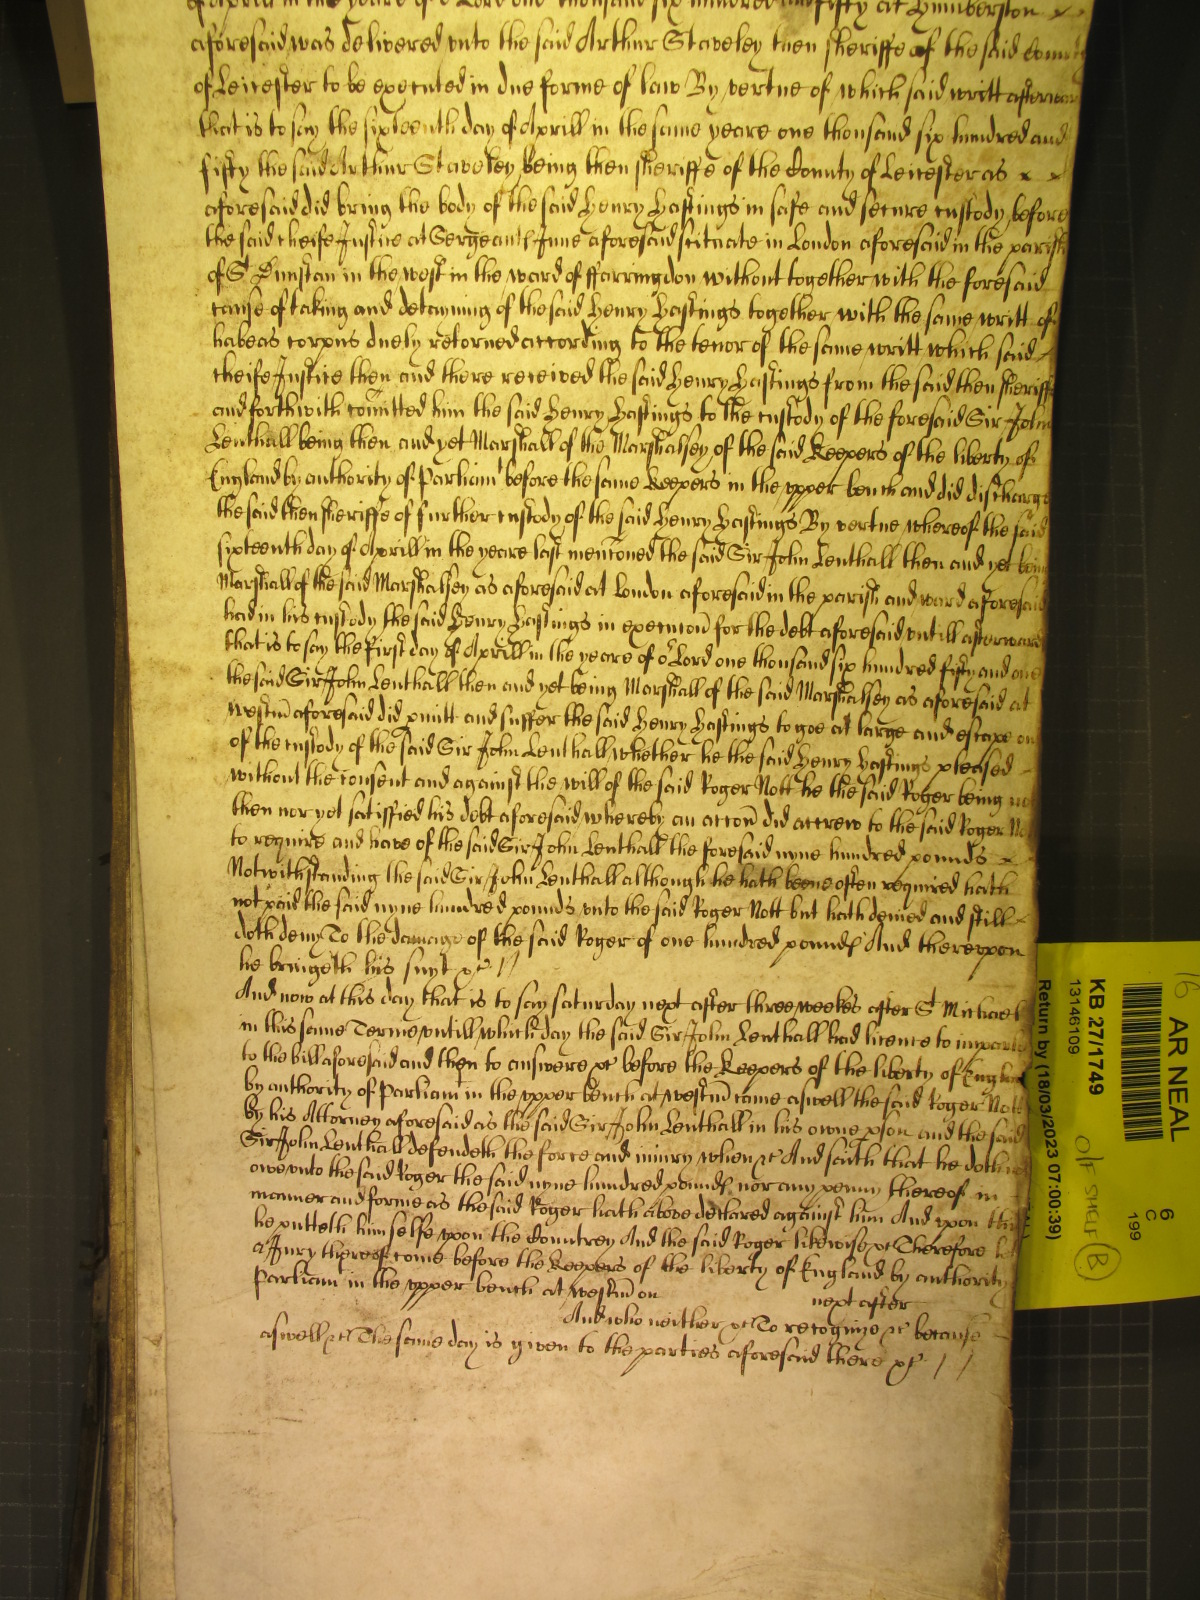 of Aprill in the yeare of oʳ Lord one thousand six hundred and fifty at Humberston
aforesaid was delivered vnto the said Arthur Staveley then sheriffe of the said County
of Leicester to be executed in due forme of law By vertue of which said writt afterwar
that is to say the sixteenth day of Aprill in the same yeare one thousand six hundred and
fifty the said Arthur Staveley being then sheriffe of the County of Leicester as
aforesaid did bring the body of the said Henry Hastings in safe and secure custody before
the said cheife Justice at Sergeants Inne aforesaid scituate in London aforesaid in the parish
of Sᵗ Dunstan in the west in the ward of ffarringdon without together with the foresaid
cause of taking and detayning of the said Henry Hastings together with the same writt of
habeas corpus duely retorned according to the tenor of the same writt which said
cheife Justice then and there received the said Henry Hastings from the said then sheriffe
and forthwith com̄itted him the said Henry Hastings to the custody of the foresaid Sir John
Lenthall being then and yet Marshall of the Marshalsey of the said Keepers of the liberty of
England by authority of Parliamᵗ before the same Keepers in the vpper bench and did discharge
the said then sheriffe of further custody of the said Henry Hastings By vertue whereof the said
sixteenth day of Aprill in the yeare last menc̄oned the said Sir John Lenthall then and yet being
Marshall of the said Marshalsey as aforesaid at London aforesaid in the parish and ward aforesaid
had in his custody the said Henry Hastings in execuc̄on for the debt aforesaid vntill afterward
that is to say the first day of Aprill in the yeare of oʳ Lord one thousand six hundred fifty and one
the said Sir John Lenthall then and yet being Marshall of the said Marshalsey as aforesaid at
westm̄ aforesaid did p̱mitt and suffer the said Henry Hastings to goe at large and escape out
of the custody of the said Sir John Lenthall whether he the said Henry Hastings pleased
without the consent and against the will of the said Roger Nott he the said Roger being no
then nor yet satisffied his debt aforesaid whereby an acc̄on did accrew to the said Roger No
to require and have of the said Sir John Lenthall the foresaid nyne hundred pounds
Notwithstanding the said Sir John Lenthall although he hath beene often required hath
not paid the said nyne hundred pounds vnto the said Roger Nott but hath denied and still
doth deny To the damage of the said Roger of one hundred pounds And therevpon
he bringeth his suyt &c //
And now at this day that is to say saturday next after three weekes after Sᵗ Michael
in this same Terme vntill which day the said Sir John Lenthall had licence to imparle
to the bill aforesaid and then to answere &c before the Keepers of the liberty of Englan
by authority of Parliam̄ in the vpper bench at westm̄ came aswell the said Roger Nott
by his Attorney aforesaid as the said Sir John Lenthall in his owne p̱son and the said
Sir John Lenthall defendeth the force and iniury when &c And saith that he doth not
owe vnto the said Roger the said nyne hundred pounds nor any penny thereof in
manner and forme as the said Roger hath above declared against him And vpon this
he putteth himselfe vpon the Countrey And the said Roger likewise &c Therefore let
a Jury thereof come before the Keepers of the liberty of England by authority
Parliam̄ in the vpper bench at westm̄ on next after
And who neither &c To recognize &c because
aswell &c The same day is given to the parties aforesaid there &c //
16
AR NEAL
KB 27/1749
13146109
Return by (18/03/2023 07:00:39)
O/F SHELF B
6
C
199